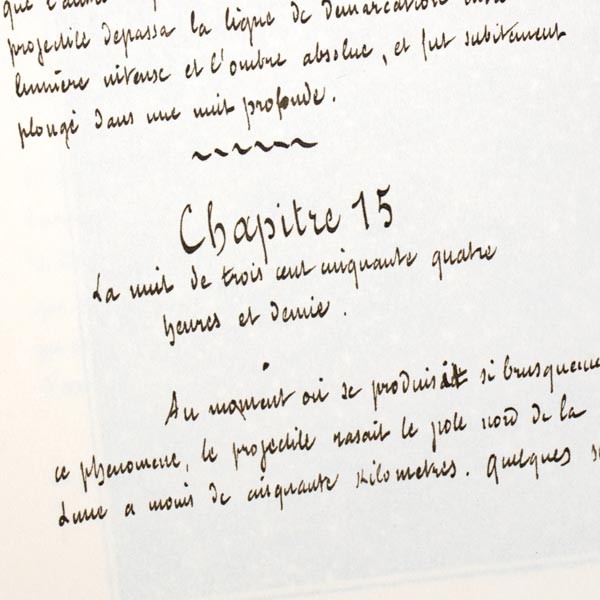 que l'
projectile depassa la ligne de demarcation
lumière intense et l'ombre absolue, et fut subitement
plongé dans une nuit profonde.
Chapitre 15
La nuit de trois cent cinquante quatre
heures et demie.
Au moment où se produisait si brusquem
ce phenomene, le projectile rasait le pole nord de la
Lune a moins de cinquante kilometres. Quelques s